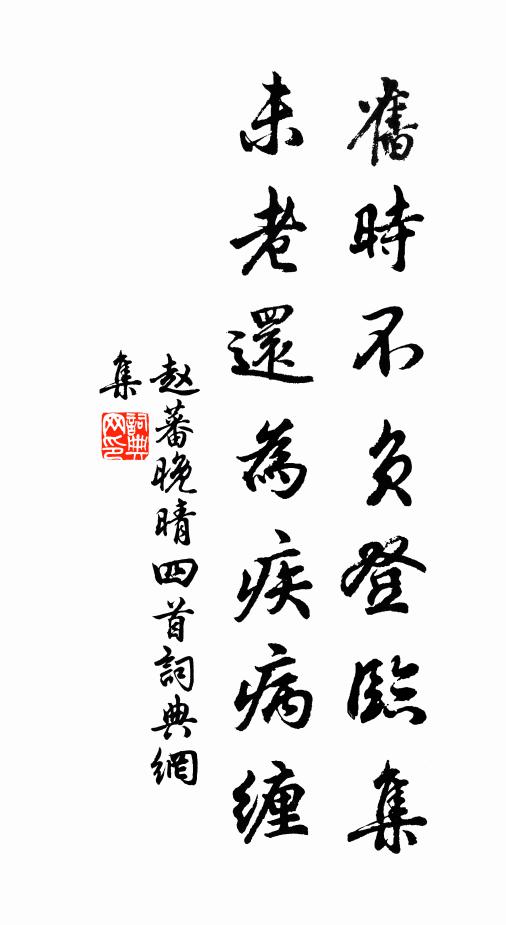 舊時不负登臨集
未老還為疾病缠
赵蕃晚晴四首詞典網
集
詞典网印